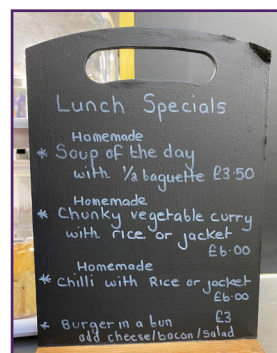 Lunch Specials
Homemade
* Soup of the day
with 1/2 baguette £3.50
Homemade
* Chunky vegetable curry
with rice or jacket
£6.00
Homemade
* Chilli with Rice or jacket
£6.00
* Burger in a bun £3
add cheese/bacon/salad